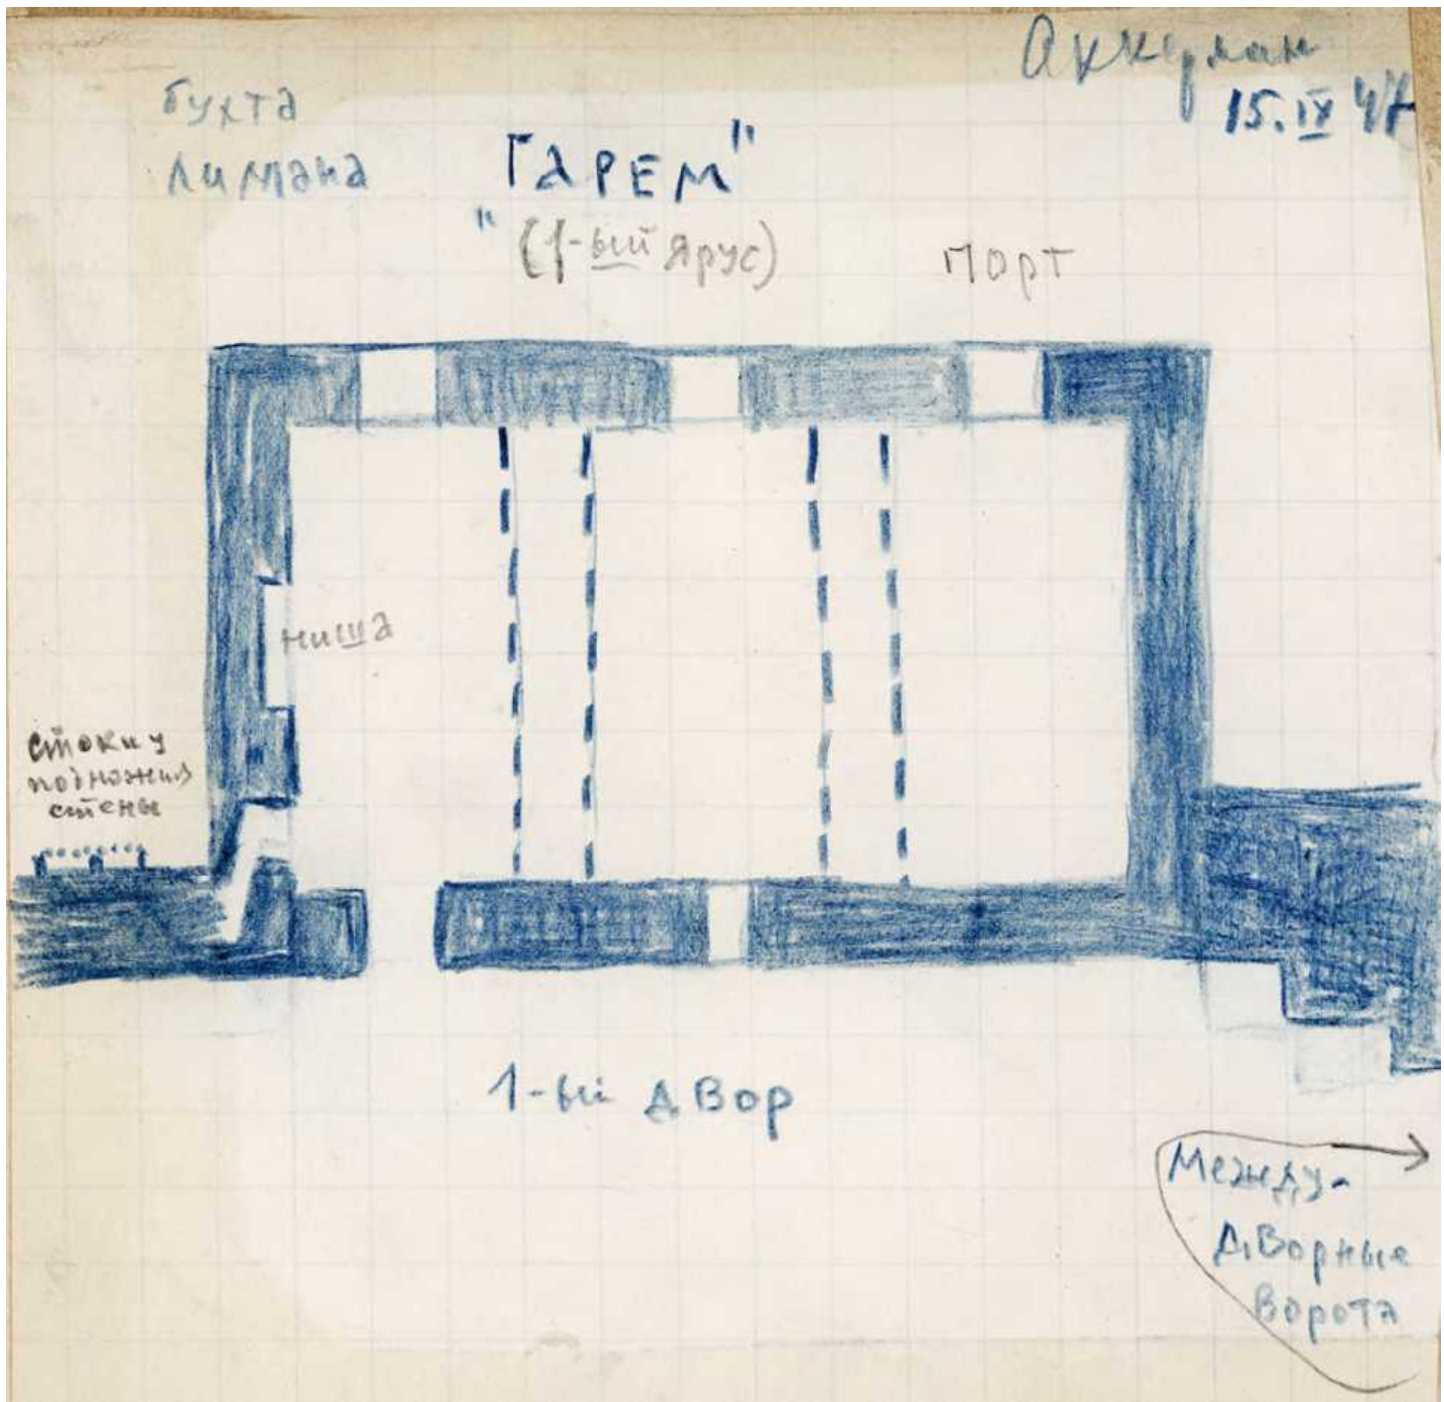 Аккерман
15.IX 47
бухта
лимана
"ГАРЕМ"
(1-ый ярус)
порт
ниша
стоки у
подножия
стены
1-ый двор
Между-
дворные
ворота